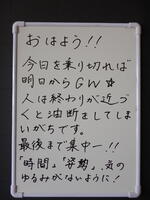 おはよう!!
今日を乗り切れば
明日からGW☆
人は終わりが近づ
くと油断をしてしま
いがちです。
最後まで集中ー!!
「時間」「姿勢」、気の
ゆるみがないように!